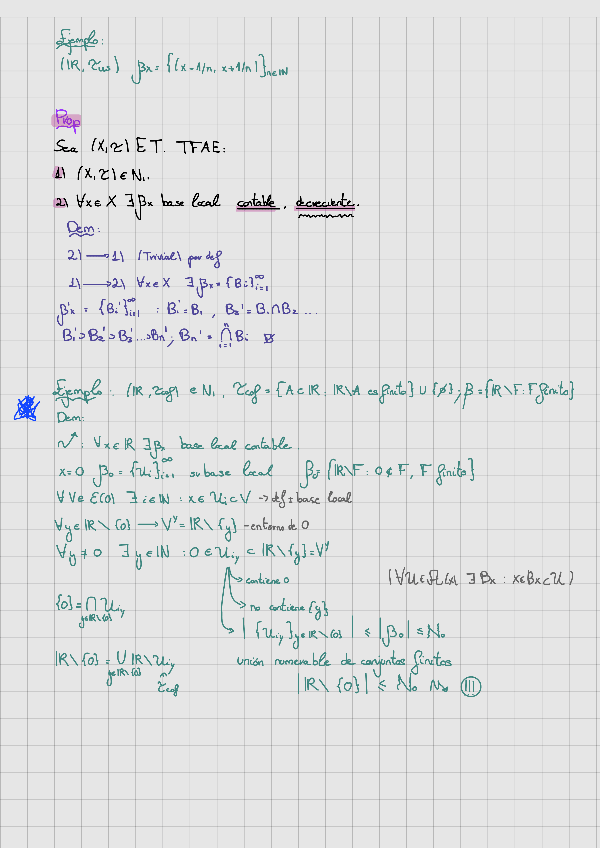 Ejemplo:
(ℝ, τus) βx = {(x-1/n, x+1/n)}n∈ℕ
Prop
Sea (X,τ) ET. TFAE:
1) (X,τ) ∈ N1.
2) ∀x∈X ∃βx base local contable, decreciente.
Dem:
2) → 1) (Trivial) por def
1) → 2) ∀x∈X ∃βx = {Bi}i=1^∞
β'x = {Bi'}i=1^∞ : B1' = B1, B2' = B1∩B2 ...
B1' ⊃ B2' ⊃ B3' ... Bn', Bn' = ⋂i=1^n Bi
Ejemplo: (ℝ, τcof) ∈ N1, τcof = {A⊂ℝ : ℝ\A es finito} ∪ {∅}; β = {ℝ\F : F finito}
Dem:
∀x∈ℝ ∃βx base local contable
x=0 β0 = {Ui}i=1^∞ su base local β0 = {ℝ\F : 0∉F, F finito}
∀V∈Ɛ(0) ∃i∈ℕ : x∈Ui⊂V → def base local
∀y∈ℝ\{0} → V^y = ℝ\{y} - entorno de 0
∀y≠0 ∃y∈ℕ : 0∈Uiy ⊂ ℝ\{y} = V^y
→ contiene 0
(∀U∈ ∃Bx : x∈Bx⊂U)
→ no contiene {y}
{0} = ⋂y∈ℝ\{0} Uiy
→ |{Uiy}y∈ℝ\{0}| ≤ |β0| ≤ ℵ0
ℝ\{0} = ⋃y∈ℝ\{0} ℝ\Uiy
τcof
unión numerable de conjuntos finitos
|ℝ\{0}| ≤ ℵ0 (!!!)